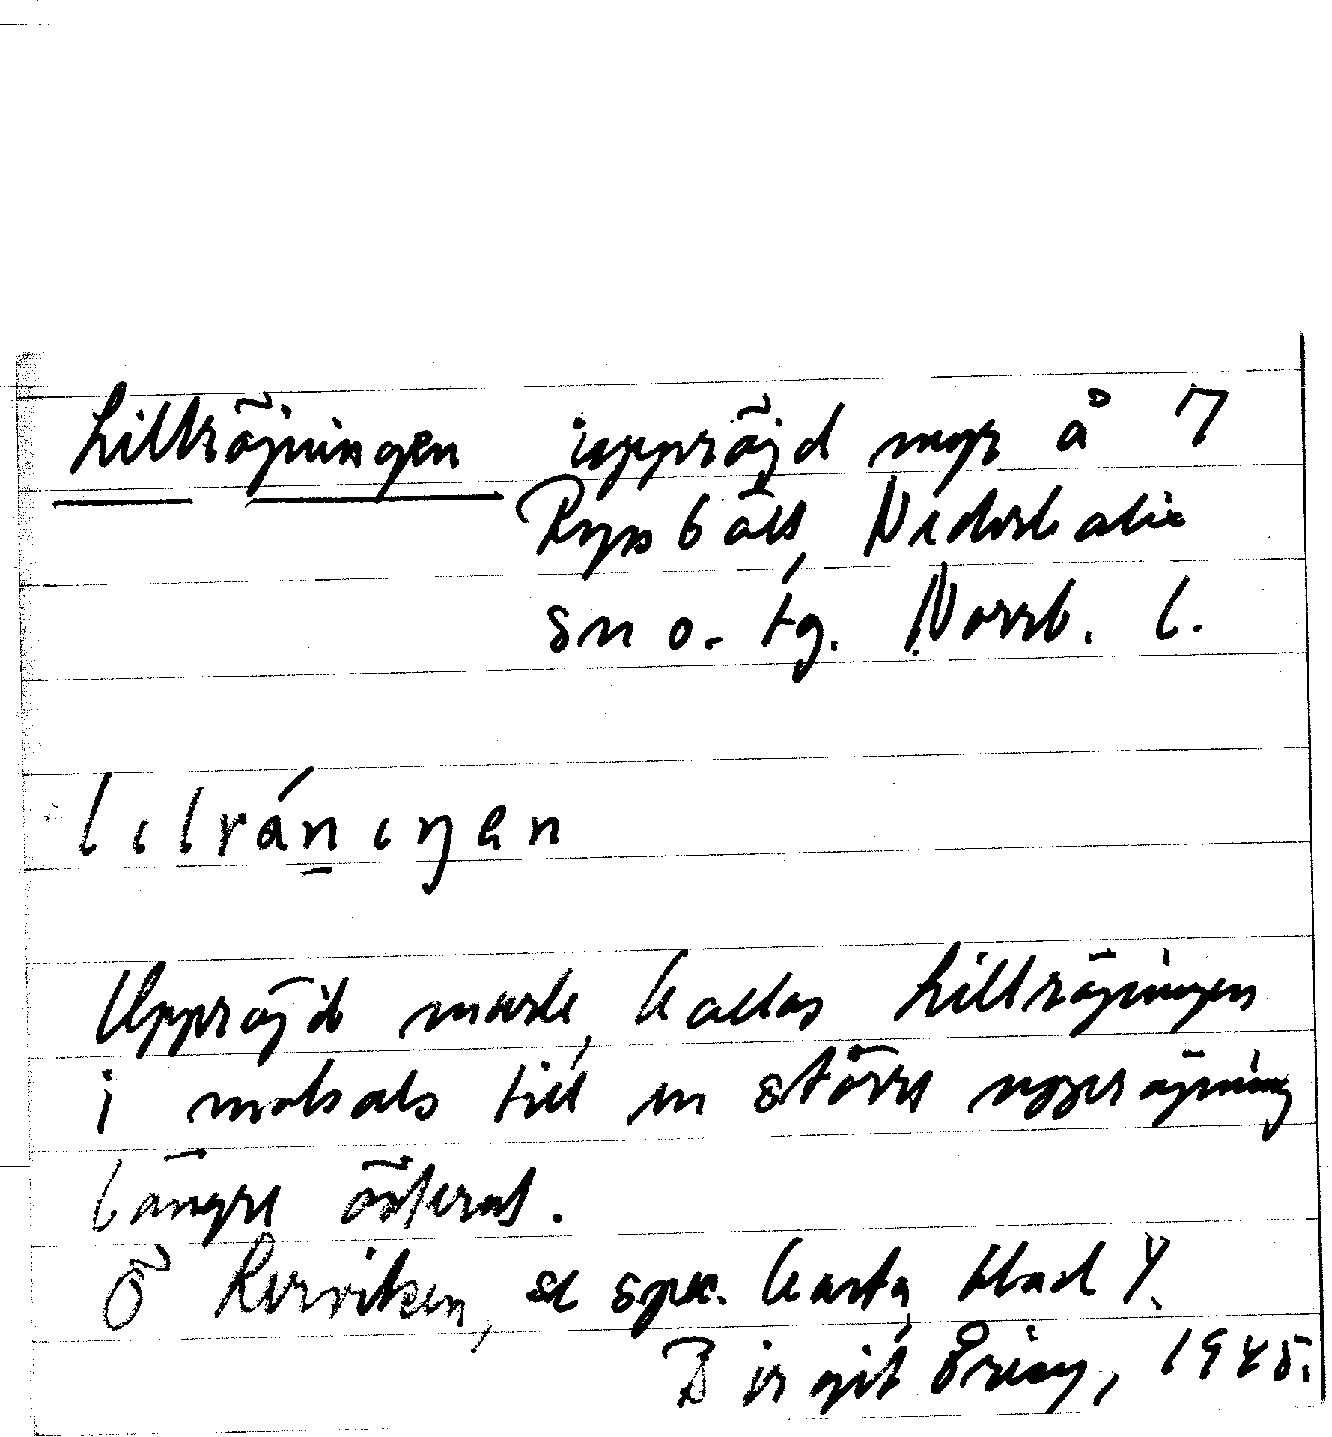 Lillröjningen uppröjd myr å 7
Rypsbält, Nederkalix
sn o. tg. Norrb. l.
lılránıŋen
Uppröjd mark, kallas Lillröjningen
i motsats till en större uppröjning
längre österut.
Ö Lerviken, se spec. karta, blad
Birgit Öring, 1945.